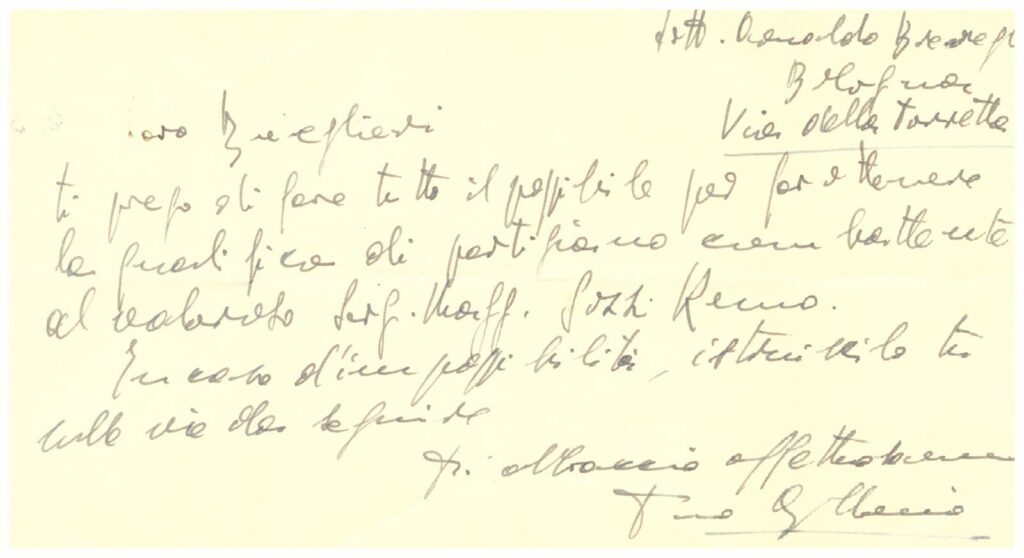 Dott. Arnaldo
Bologna
Via della Torretta
caro Brieglieri
ti prego di fare tutto il possibile per far ottenere
la qualifica di partigiano combattente
al valoroso Serg. Magg. Gozzi Remo.
In caso d'impossibilità, istruiscilo tu
sulla via da seguire
Ti abbraccio affettuosamen
Tuo